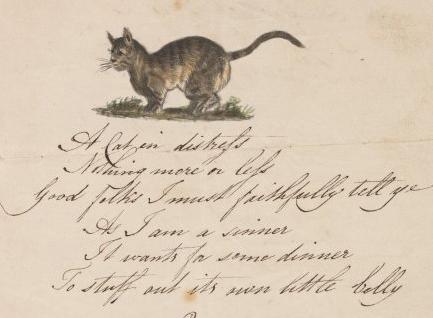 A Cat in distress
Nothing more or less
Good folks I must faithfully tell ye
As I am a sinner
It wants for some dinner
To stuff out its own little belly